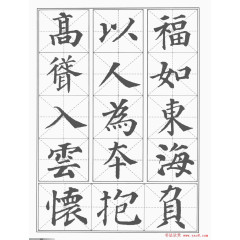 福如東海
以人為夲
髙聳入雲
懷抱負